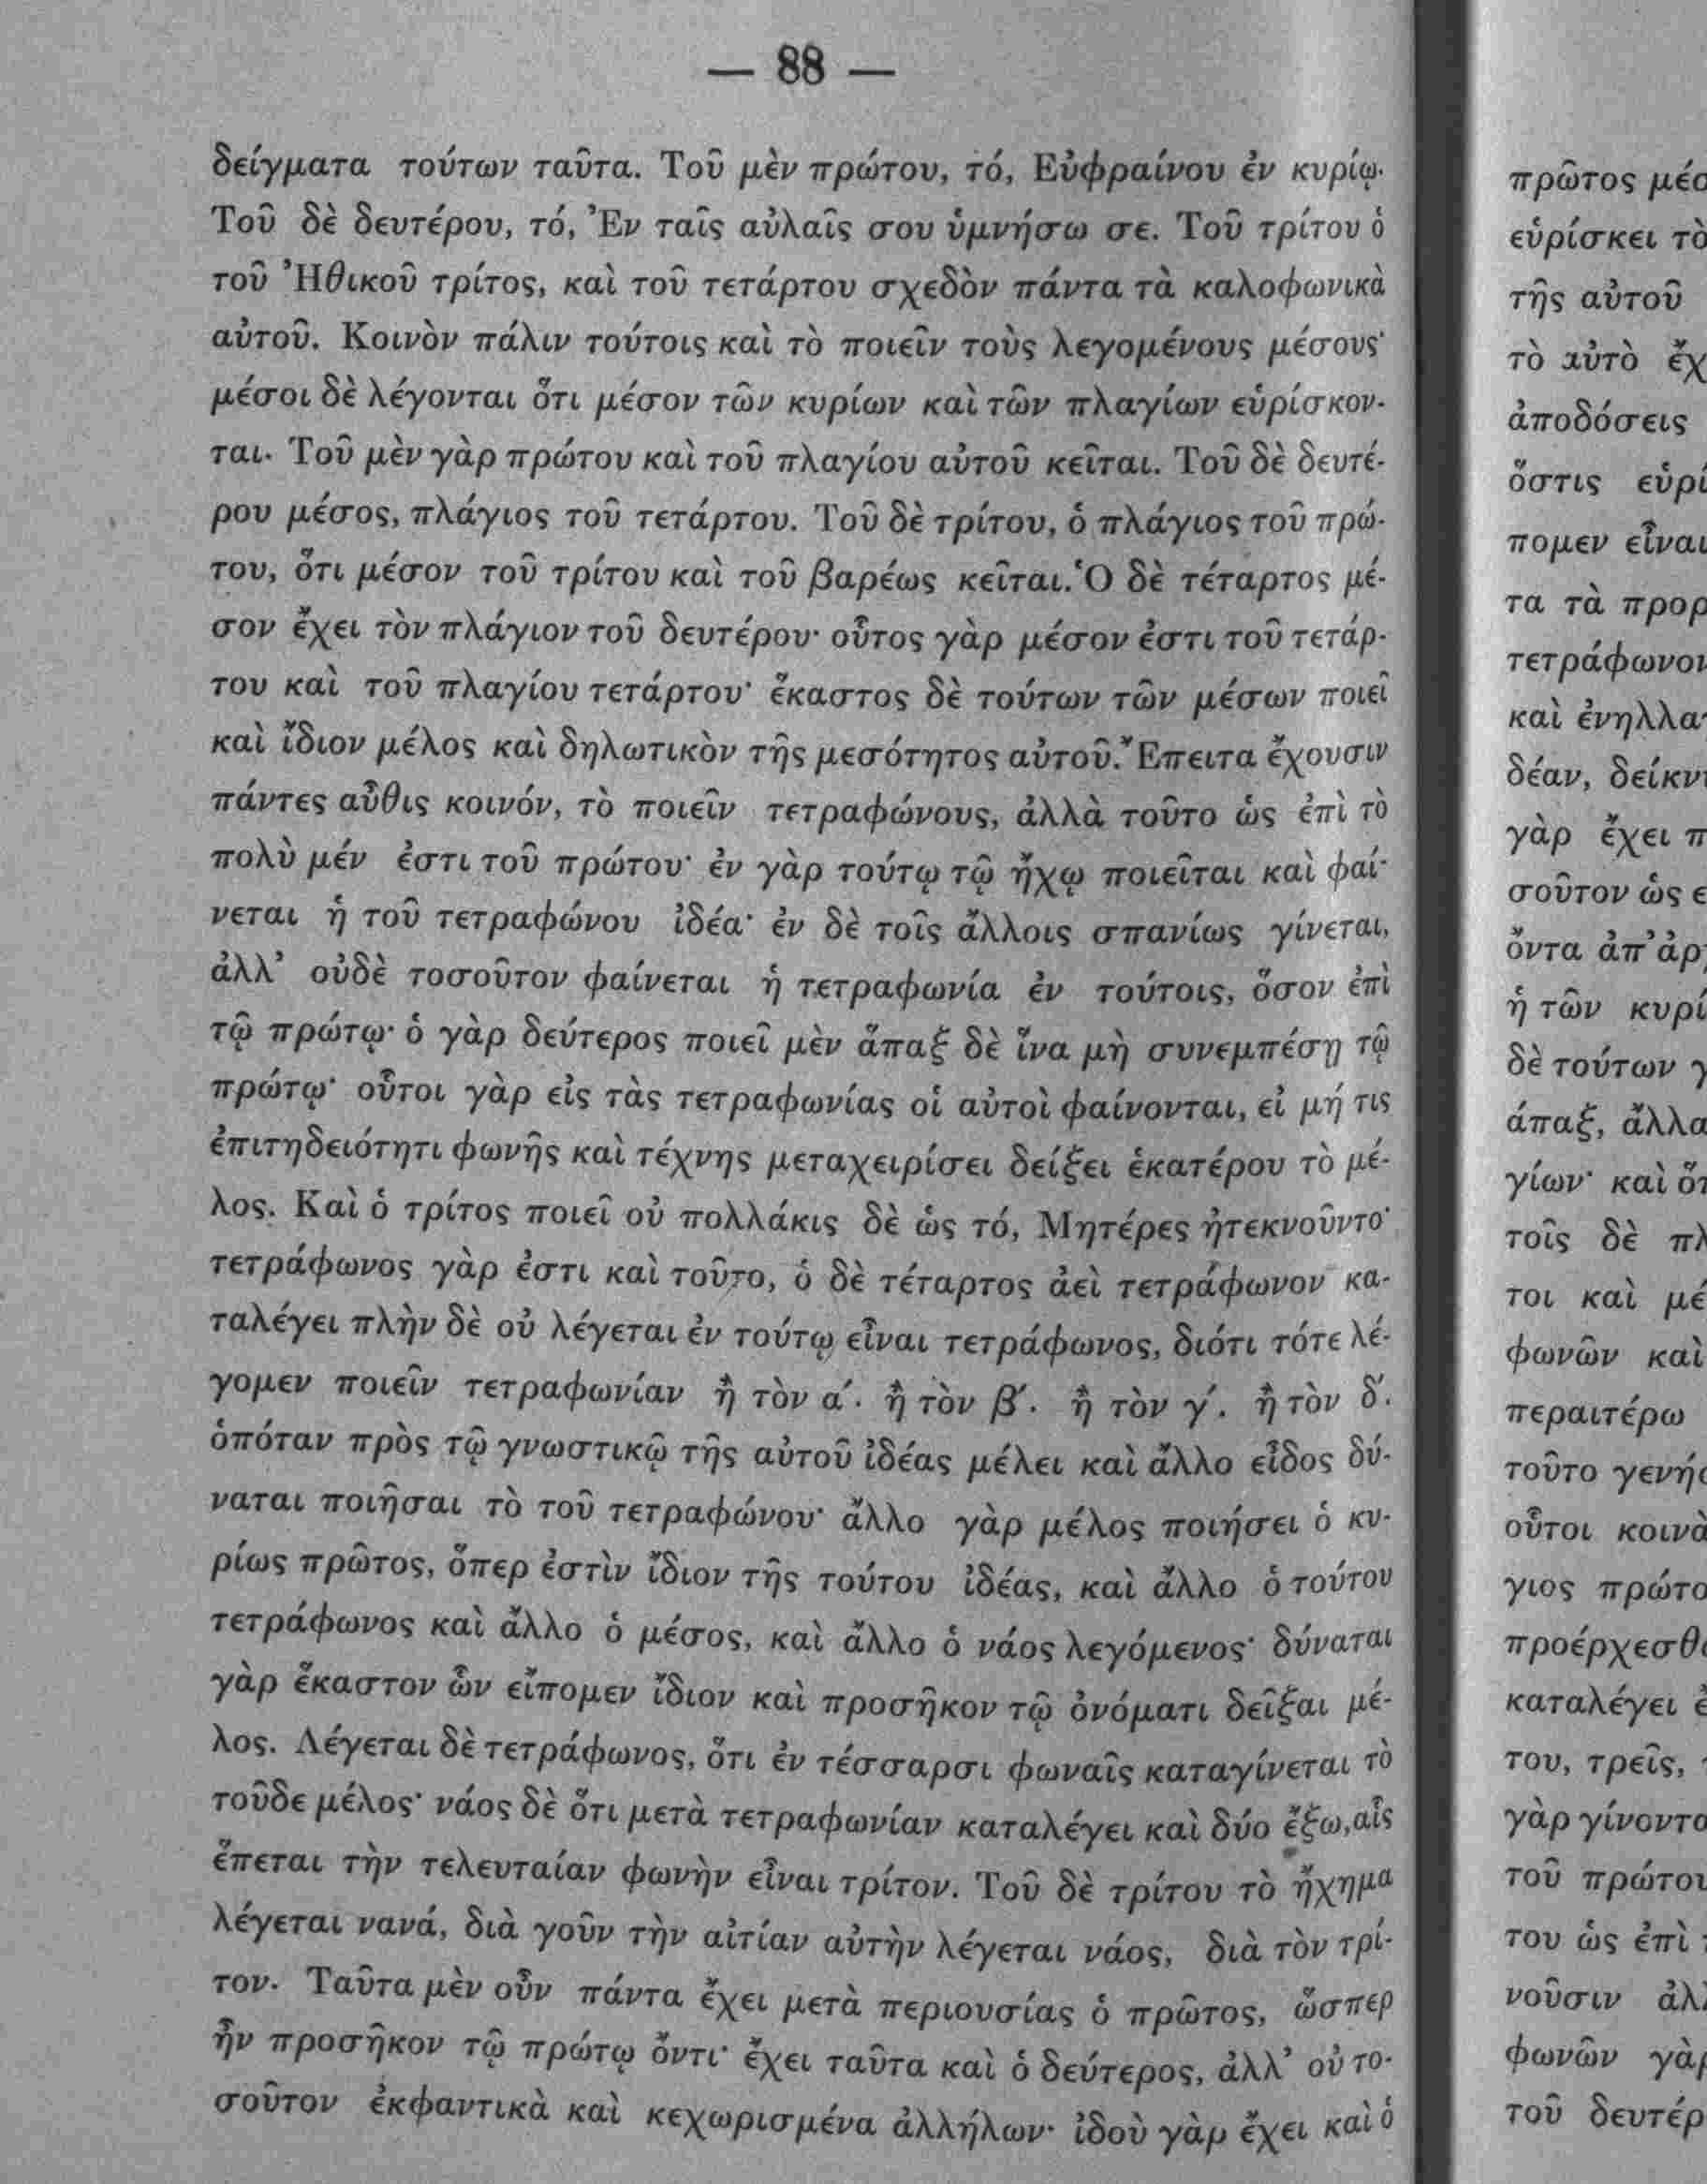 — 88 —
δείγματα τούτων ταῦτα. Τοῦ μὲν πρώτου, τό, Εὐφραίνου ἐν κυρίῳ.
Τοῦ δὲ δευτέρου, τό, Ἐν ταῖς αὐλαῖς σου ὑμνήσω σε. Τοῦ τρίτου ὁ
τοῦ Ἠθικοῦ τρίτος, καὶ τοῦ τετάρτου σχεδὸν πάντα τὰ καλοφωνικὰ
αὐτοῦ. Κοινὸν πάλιν τούτοις καὶ τὸ ποιεῖν τοὺς λεγομένους μέσους·
μέσοι δὲ λέγονται ὅτι μέσον τῶν κυρίων καὶ τῶν πλαγίων εὑρίσκον-
ται. Τοῦ μὲν γὰρ πρώτου καὶ τοῦ πλαγίου αὐτοῦ κεῖται. Τοῦ δὲ δευτέ-
ρου μέσος, πλάγιος τοῦ τετάρτου. Τοῦ δὲ τρίτου, ὁ πλάγιος τοῦ πρώ-
του, ὅτι μέσον τοῦ τρίτου καὶ τοῦ βαρέως κεῖται. Ὁ δὲ τέταρτος μέ-
σον ἔχει τὸν πλάγιον τοῦ δευτέρου· οὗτος γὰρ μέσον ἐστι τοῦ τετάρ-
του καὶ τοῦ πλαγίου τετάρτου· ἕκαστος δὲ τούτων τῶν μέσων ποιεῖ
καὶ ἴδιον μέλος καὶ δηλωτικὸν τῆς μεσότητος αὐτοῦ. Ἔπειτα ἔχουσιν
πάντες αὖθις κοινόν, τὸ ποιεῖν τετραφώνους, ἀλλὰ τοῦτο ὡς ἐπὶ τὸ
πολὺ μέν ἐστι τοῦ πρώτου· ἐν γὰρ τούτῳ τῷ ἤχῳ ποιεῖται καὶ φαί-
νεται ἡ τοῦ τετραφώνου ἰδέα· ἐν δὲ τοῖς ἄλλοις σπανίως γίνεται,
ἀλλ' οὐδὲ τοσοῦτον φαίνεται ἡ τετραφωνία ἐν τούτοις, ὅσον ἐπὶ
τῷ πρώτῳ· ὁ γὰρ δεύτερος ποιεῖ μὲν ἅπαξ δὲ ἵνα μὴ συνεμπέσῃ τῷ
πρώτῳ· οὗτοι γὰρ εἰς τὰς τετραφωνίας οἱ αὐτοὶ φαίνονται, εἰ μή τις
ἐπιτηδειότητι φωνῆς καὶ τέχνης μεταχειρίσει δείξει ἑκατέρου τὸ μέ-
λος. Καὶ ὁ τρίτος ποιεῖ οὐ πολλάκις δὲ ὡς τό, Μητέρες ἠτεκνοῦντο·
τετράφωνος γὰρ ἐστι καὶ τοῦτο, ὁ δὲ τέταρτος ἀεὶ τετράφωνον κα-
ταλέγει πλὴν δὲ οὐ λέγεται ἐν τούτῳ εἶναι τετράφωνος, διότι τότε λέ-
γομεν ποιεῖν τετραφωνίαν ἢ τὸν α΄. ἢ τὸν β΄. ἢ τὸν γ΄. ἢ τὸν δ΄.
ὁπόταν πρὸς τῷ γνωστικῷ τῆς αὐτοῦ ἰδέας μέλει καὶ ἄλλο εἶδος δύ-
ναται ποιῆσαι τὸ τοῦ τετραφώνου· ἄλλο γὰρ μέλος ποιήσει ὁ κυ-
ρίως πρῶτος, ὅπερ ἐστὶν ἴδιον τῆς τούτου ἰδέας, καὶ ἄλλο ὁ τούτου
τετράφωνος καὶ ἄλλο ὁ μέσος, καὶ ἄλλο ὁ νάος λεγόμενος· δύναται
γὰρ ἕκαστον ὧν εἴπομεν ἴδιον καὶ προσῆκον τῷ ὀνόματι δεῖξαι μέ-
λος. Λέγεται δὲ τετράφωνος, ὅτι ἐν τέσσαρσι φωναῖς καταγίνεται τὸ
τοῦδε μέλος· νάος δὲ ὅτι μετὰ τετραφωνίαν καταλέγει καὶ δύο ἔξω, αἷς
ἕπεται τὴν τελευταίαν φωνὴν εἶναι τρίτον. Τοῦ δὲ τρίτου τὸ ἤχημα
λέγεται νανά, διὰ γοῦν τὴν αἰτίαν αὐτὴν λέγεται νάος, διὰ τὸν τρί-
τον. Ταῦτα μὲν οὖν πάντα ἔχει μετὰ περιουσίας ὁ πρῶτος, ὥσπερ
ἦν προσῆκον τῷ πρώτῳ ὄντι· ἔχει ταῦτα καὶ ὁ δεύτερος, ἀλλ' οὐ το-
σοῦτον ἐκφαντικὰ καὶ κεχωρισμένα ἀλλήλων· ἰδοὺ γὰρ ἔχει καὶ ὁ
πρῶτος
εὑρίσκει τὸ
τῆς αὐτοῦ
τὸ αὐτὸ
ἀποδόσεις
ὅστις
πομεν εἶναι
τα τὰ
τετράφωνον
καὶ
δέαν,
γὰρ ἔχει
σοῦτον ὡς
ὄντα ἀπ'
ἡ τῶν
δὲ τούτων
άπαξ,
γίων· καὶ
τοῖς δὲ
τοι καὶ
φωνῶν καὶ
περαιτέρω
τοῦτο
οὗτοι
γιος
καταλέγει
του, τρεῖς,
γὰρ
τοῦ
του ὡς ἐπὶ
νοῦσιν
φωνῶν
τοῦ